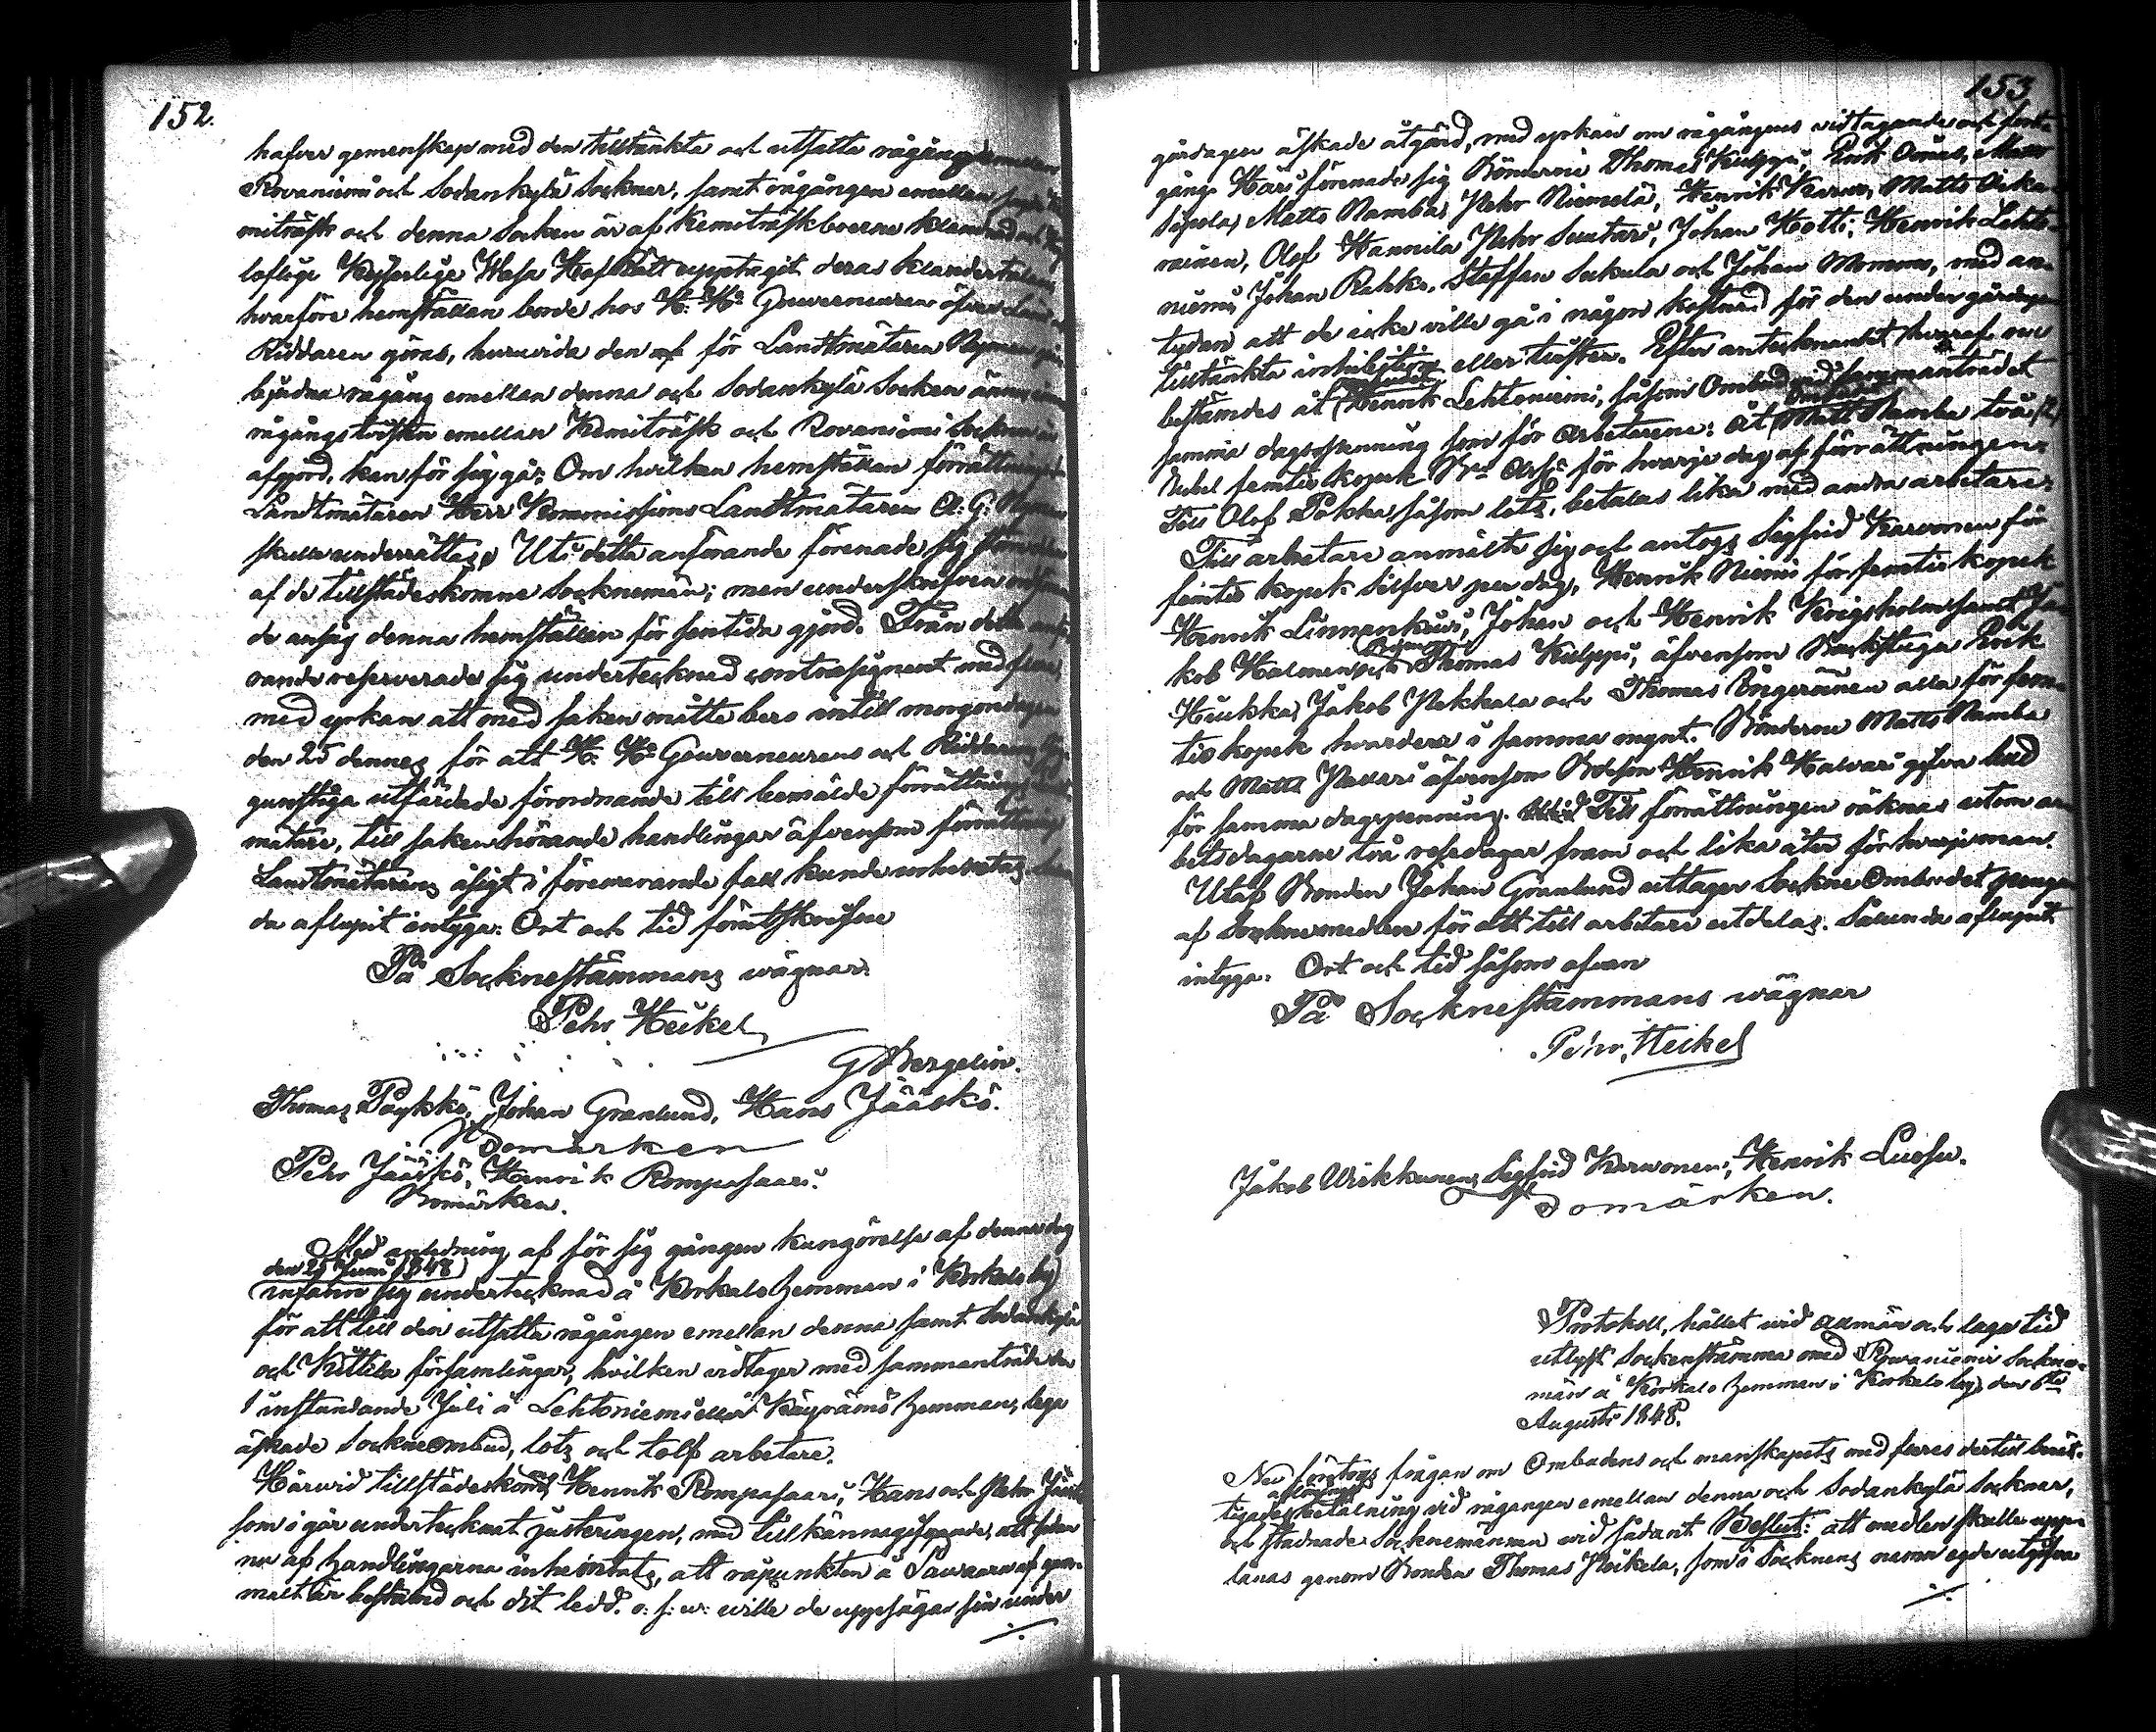 152.
hafver gemenskap med den tilltänkta och utsatta rågången emellan
Rovaniemi och Sodankylä Socknar, samt rågången emellan
miträsk och denna Socken är af Kemiträskboerne klandrad och
loflige Kejserlige Wasa HofRätt upptagit deras klandertalan
hvarföre hemställan borde hos H: Hr Gouverneuren öfver Länet
Riddaren göras, huruvida den af för Landtmätaren Nyman
bjudna rågång emellan denna och Sodankylä Socken ännu innan
rågångstvisten emellan Kemiträsk och Rovaniemi Socknar är
afgjord, kan för sig gå; Om hvilken hemställan förrättnings
Landtmätaren Herr Kommissions Landtmätaren C: G: Nyman
skulle underrättas. Uti detta anförande förenade sig
af de tillstädeskomne Socknemän; men underskrifven
de ansåg denna hemställan för sentida gjord. Från detta anfö-
rande reserverade sig undertecknad contrasignent med flere,
med yrkan att med saken måtte bero intill morgondagen
den 25 dennes för att H: Hr Gouverneurens och Riddarens
gunstiga utfärdade förordnande till bemälde förrättnings Landt
mätare, till saken hörande handlingar äfvensom förrättnings
Landtmätarens åsigt i förevarande fall kunde inhemtas. Sålun
da aflupit intyga. Ort och tid förutskrifne
På Socknestämmans wägnar:
Pehr Heikel
G Bergelin.
Thomas Paykkö, Johan Granlund, Hans Jääskö.
Bomärken
Pehr Jääskö, Henrik Rompasaari.
Bomärken.
Med anledning af för sig gången kungörelse af denna dag
den 25 Juni 1848)
(infann sig undertecknad å Korkalo hemman i Korkalo by)
för att till den utsatta rågången emellan denna samt Sodankylä
och Kittilä församlingar, hvilken vidtager med sammanträde den
1 instundande Juli å Lehtoniemi eller Käyrämö hemman, lega
äskade Sockneombud, lots och tolf arbetare.
Härvid tillstädeskomne Henrik Rompasaari, Hans och Pehr Jääskö
som i går undertecknat justeringen, med tillkännagifvande, att sedan
nu af handlingarna inhemtats, att råpunkten å Sauvaara af gam-
malt är bestämd och dit ledd. o: s: w: wille de uppsäga sin under
./.
153
gårdagen äskade åtgärd, med yrkan om rågångens vidtagande och fort-
gång. Häri förenade sig Bönderne Thomas Kulppi, Erik Oinas, Matts
Sipola, Matts Namba, Pehr Niemelä, Henrik Karvo, Matts Oika-
rainen, Olof Hannila Pehr Suutari, Johan Hotti, Henrik Lehto-
niemi, Johan Rahko, Staffan Sukula och Johan Mommo, med an-
tydan att de icke ville gå i någon kostnad för den under gårdagen
tilltänkta inhibition eller tvisten. Efter antecknandet hvaraf nu
bestämdes åt (Henrik Lehtoniemi, såsom Ombud vid sammanträdet
samma dagspenning som för arbetarene: åt Matts Namba två (2)
Rubel femtio kopek för hvarje dag af förrättningen.
Till Olof Pokka såsom lots, betalas lika med andra arbetare.
Till arbetare anmälte sig och antogs Sigfrid Karvonen för
femtio kopek silfver per dag, Henrik Niemi för femtio kopek
Henrik Linnankivi, Johan och Henrik Krigsholm samt Ja-
kob Halonen och Thomas Kulppi, äfvensom Backstuga Erik
Hiukka, Jakob Pekkala och Thomas Ingeräinen alla för fem-
tio kopek hvardera i samma mynt. Bönderne Matts Namba
och Matts Pavari äfvensom Bdeson Henrik Halvari gifva bud
för samma dagspenning. Till förrättningen räknas utom ar-
betsdagarne två resedagar fram och lika åter för hvarje man.
Utaf Bonden Johan Granlund uttager Sockne Ombudet penge
af Sockne medlen för att till arbetare utdelas. Sålunda aflupit
intyga. Ort och tid såsom ofvan
På Socknestämmans wägnar
Pehr Heikel
Jakob Urikkunen, Sigfrid Karvonen, Henrik Luusu.
Bomärken.
Protokoll, hållet vid allmän och laga tid
utlyst Sockenstämma med Rowaniemi Sockne-
män å Korkalo hemman i Korkalo by, den 6te
Augusti 1848.
Nu företogs frågan om Ombudens och manskapets med flere dertill berät-
tigades betalning vid rågången emellan denna och Sodankylä Socknar,
och stadnade Socknemännen vid sådant Beslut: att medlen skulle upp-
lånas genom Bonden Thomas Heikela, som i Socknens namn egde utgifva
./.